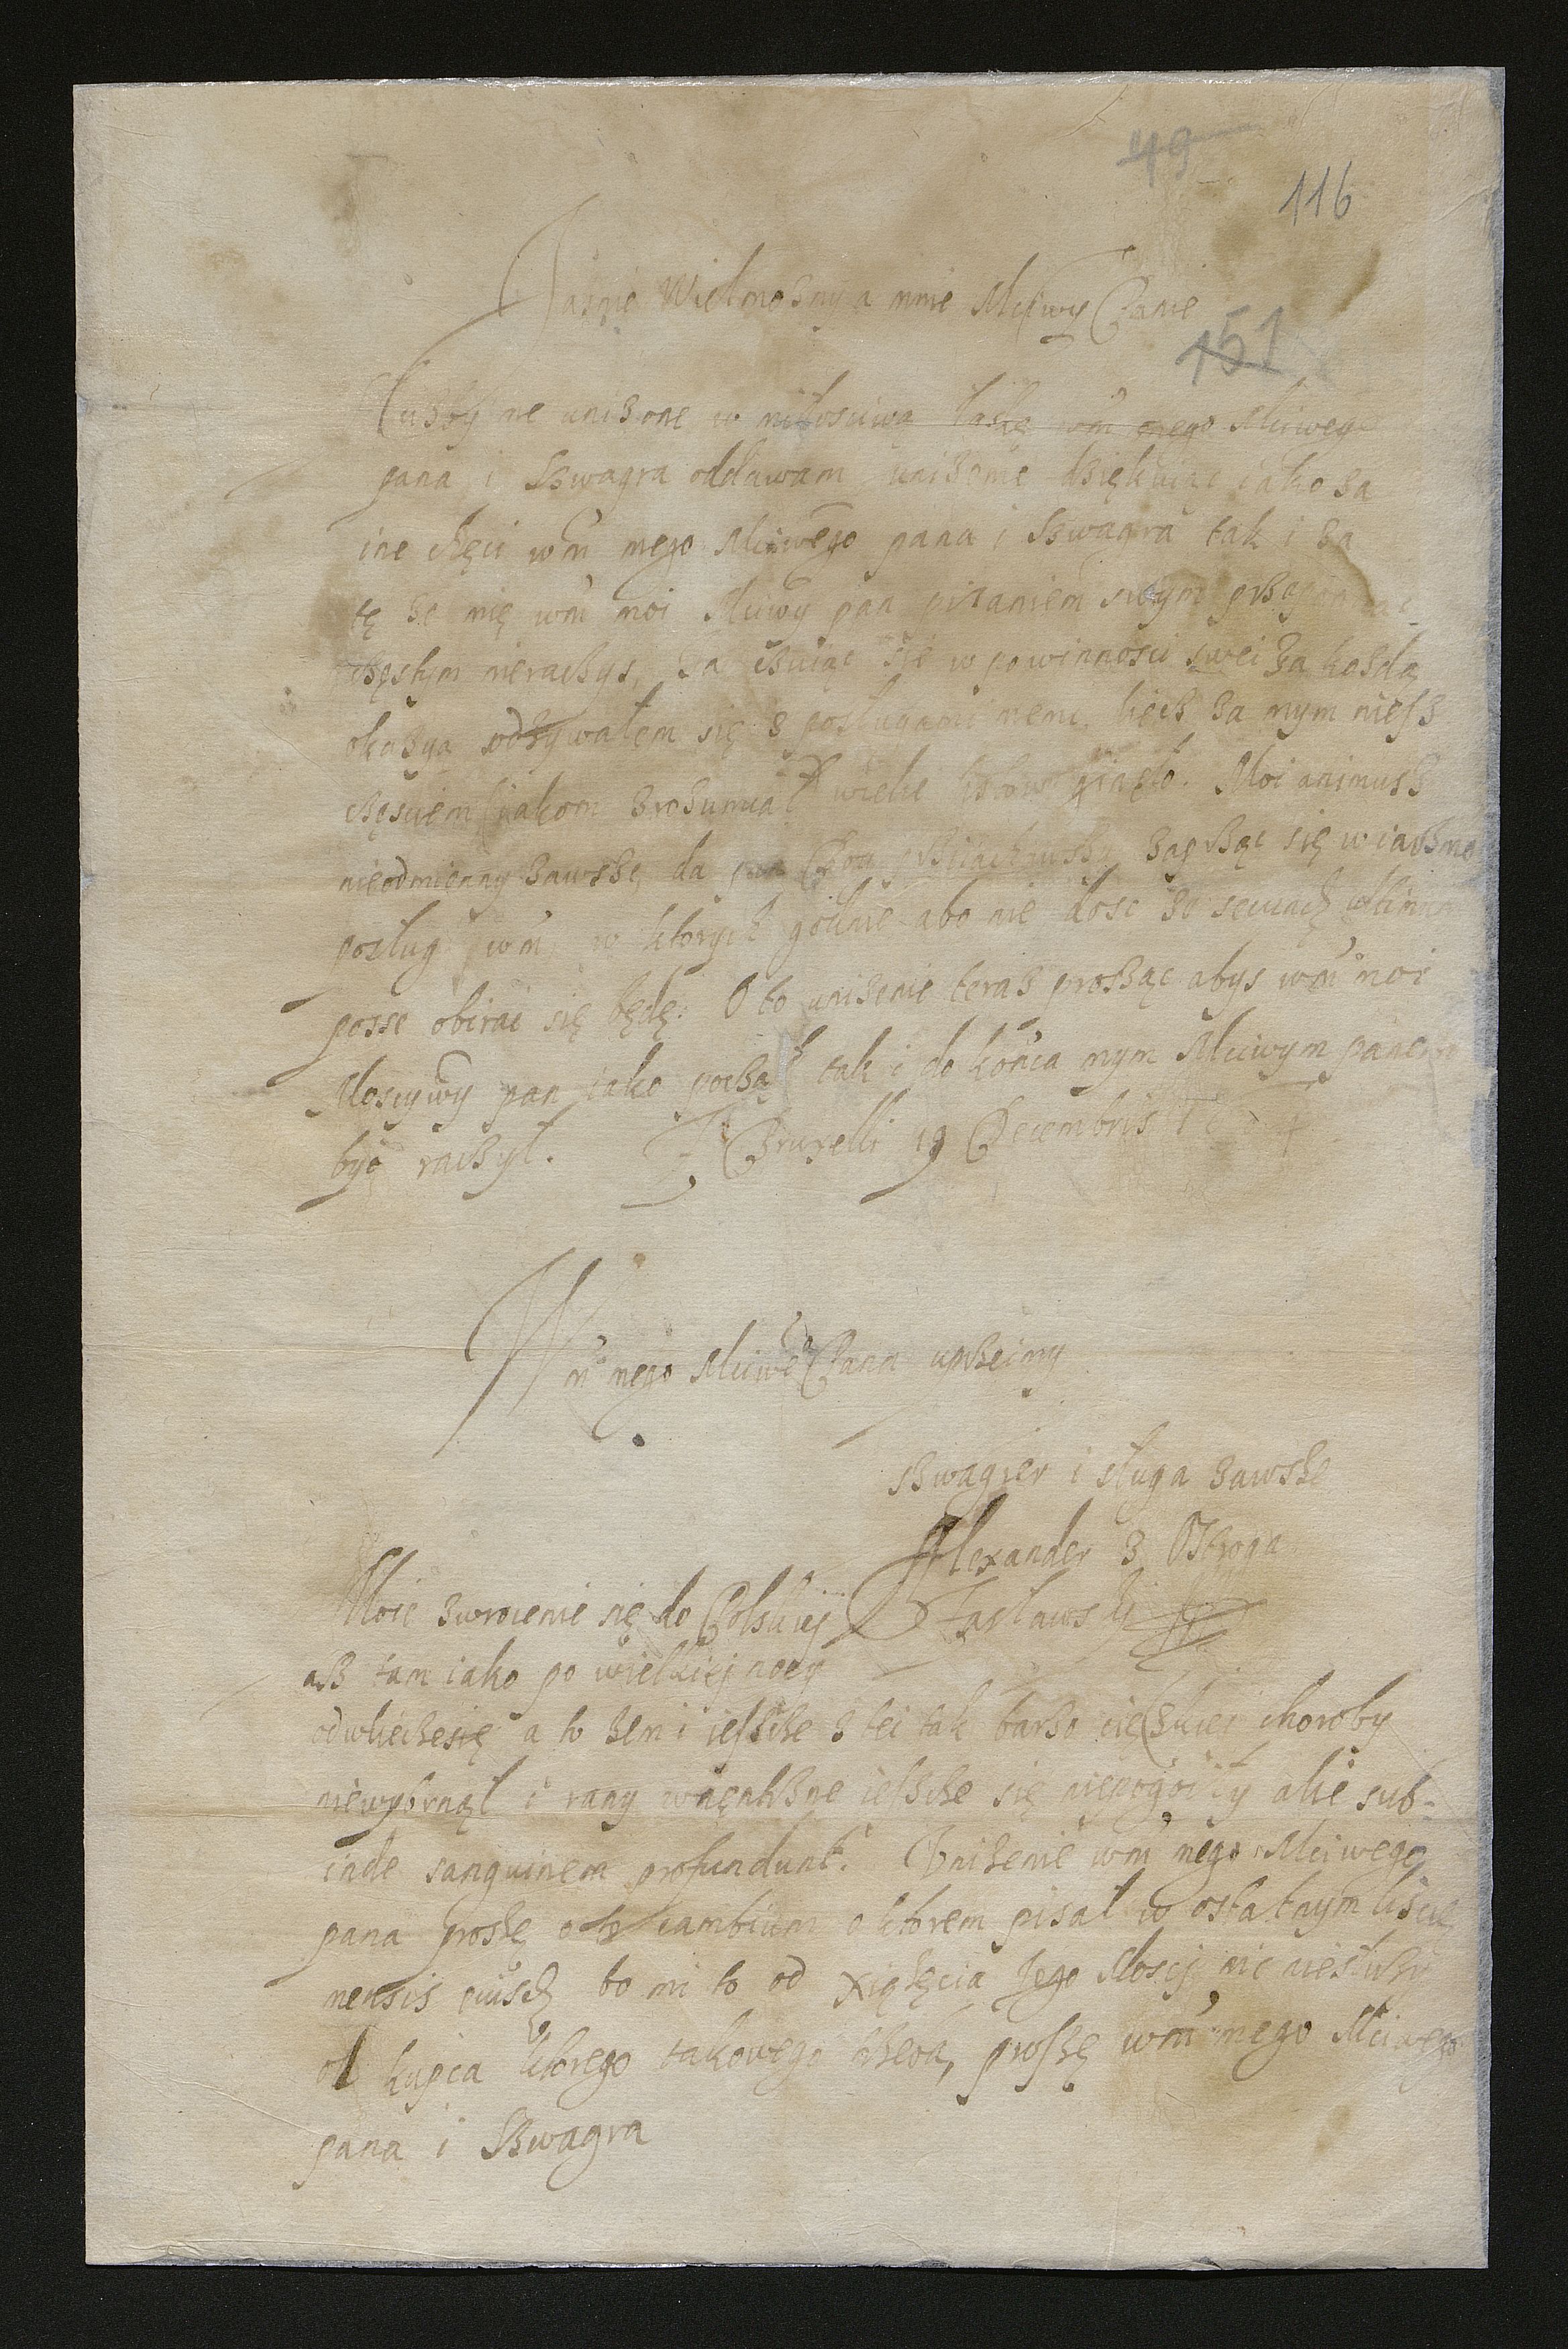 49
116
Jasnie Wielmozny a mnie Mciwy Panie
151
Sluzby me unizone w milosciwą laskę wm̃ mego Mciwego
pana i Szwagra oddawam unizenie dziękuiąc iako za
ine chęci wm̃ mego Mciwego pana i Szwagra tak i za
tę ze mię wm̃ moi Mciwy pan pisaniem swym
częstym raczys, Ja czuiąc się w powinnosci swei za kozdą
okazyą odzywałem się z posługami memi, liecz za mym niesz
częsciem (iakom zrozumiał) wiele listow ginęło. Moi animusz
nieodmienny zawszę da pan Bog zaprząc się w iarzmo
posług wm̃, w ktorych godnie abo nie dosc ze
posse obirac się będę. O to unizenie teraz prosząc abys wm̃ moi
Moscywy pan iako począł tak i do końca mym Mciwym panem
być raczył. Z Bruxelli 19 Decembris
Wm̃ mego Mciwe̊ Pana uprzeimy
szwagier i sługa zawsze
Alexander z Ostroga
Zasławski
Moie zwrocenie się do Polskiej
asz tam iako po wielkiej nocy
odwlieczesię a to zem i iescze z tei tak barzo cięszkiei choroby
niewybrnął i rany wnęntrzne iescze się niepogoiły alie sub-
inde sanguinem profundunt. Unizenie wm̃ mego Mciwego
pana proszę o to cambium o ktorem pisał w ostatnym liscie
mensis bo mi to od Xiązęcia Jego Moscj nic niesłuzy
od kupca ktorego takowego proszę wm̃ mego Mciwego
pana i Szwagra